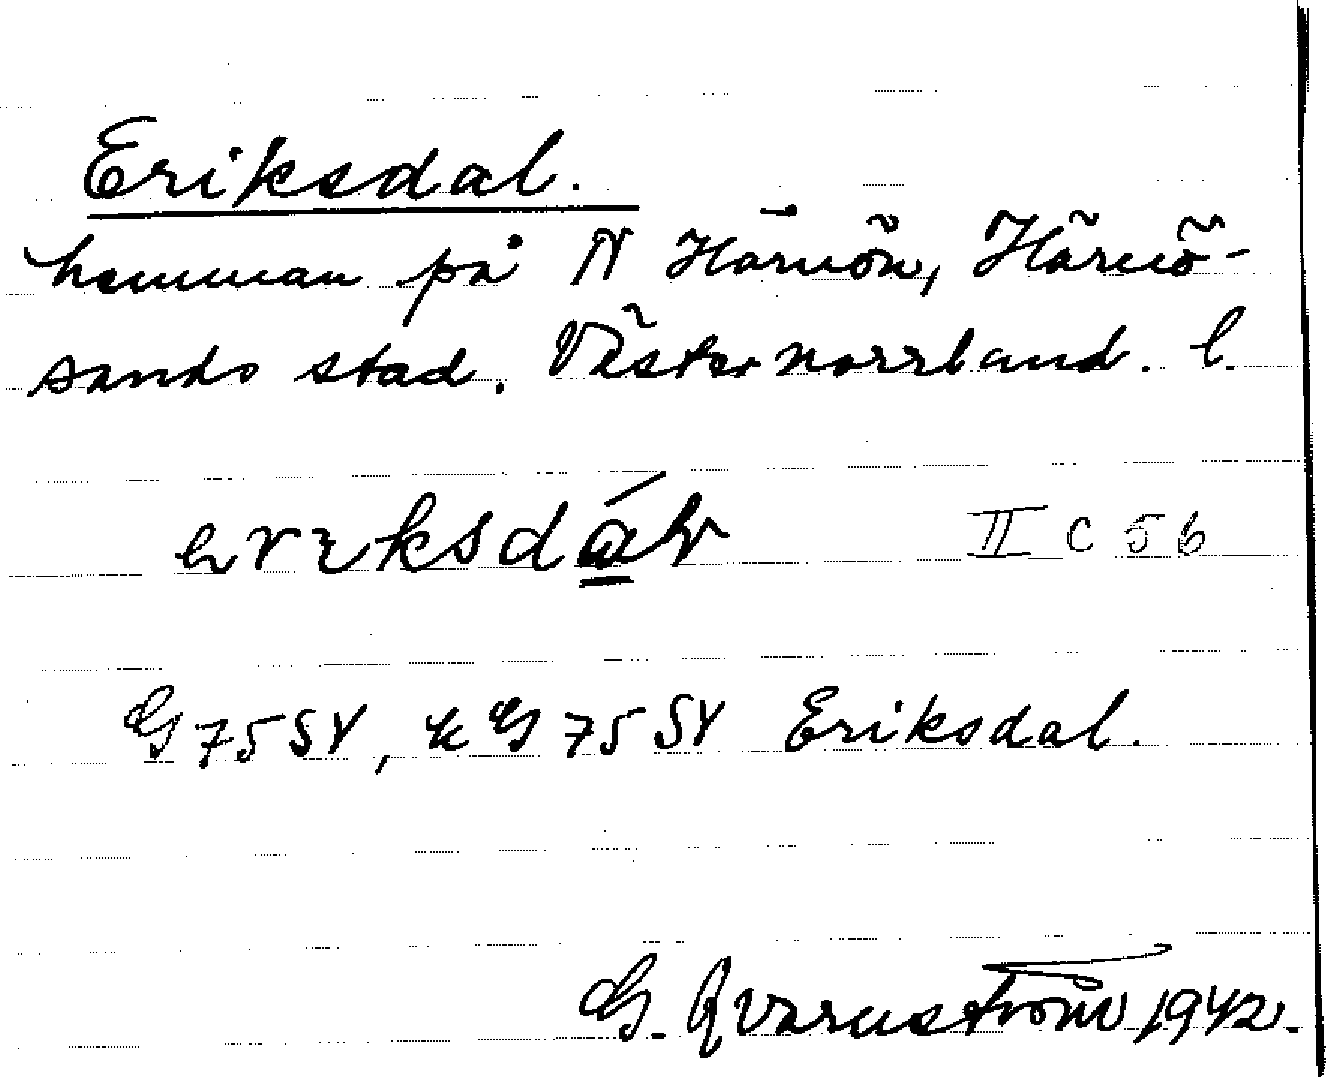 Eriksdal.
hemman på N Härnön, Härnö-
sands stad. Västernorrland. l.
II C 56
G 75 SV, k G 75 SV Eriksdal.
G. Qvarnström 1942.